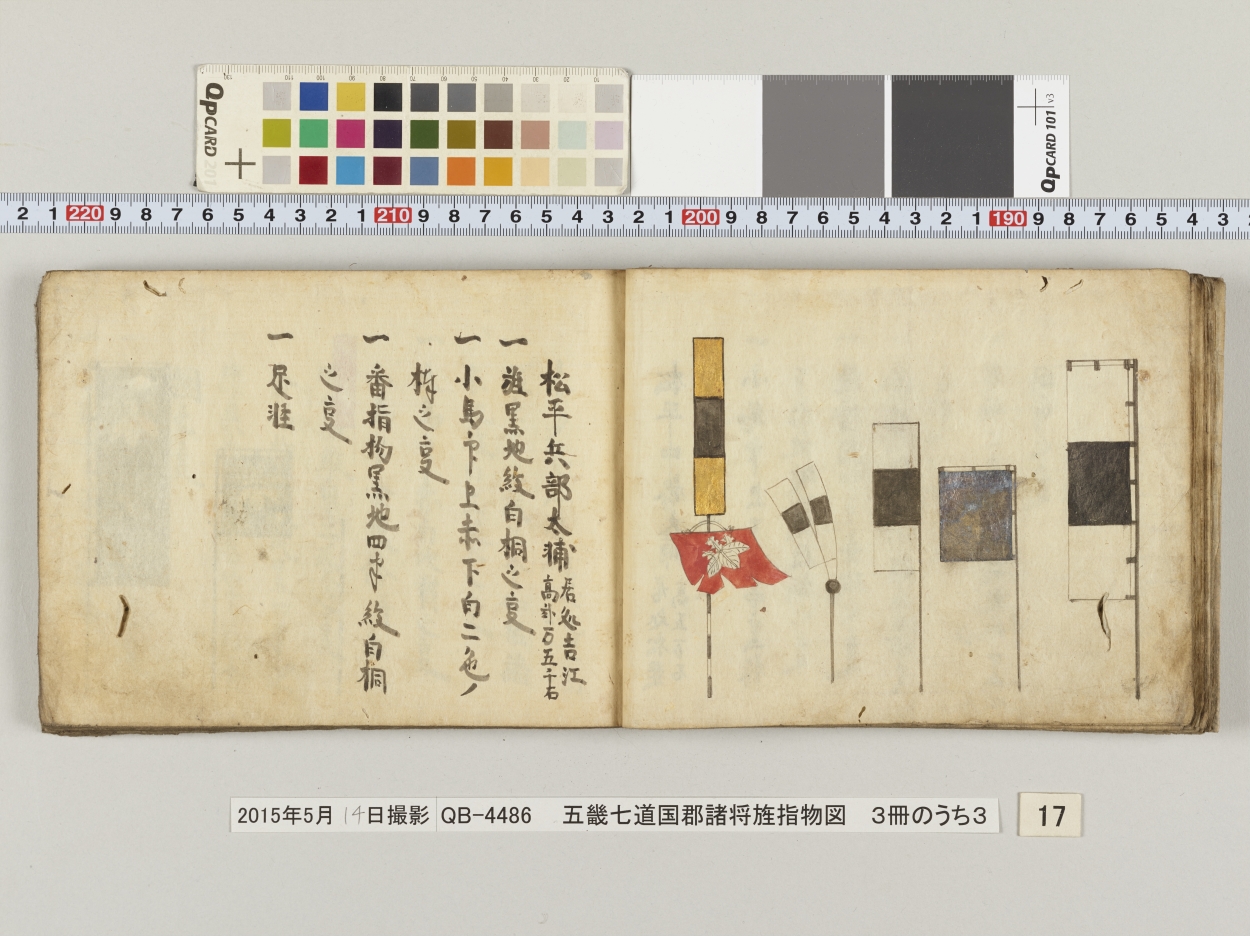 QpCARD 201
QpCARD 101 v3
2 1 220 9 8 7 6 5 4 3 2 1 210 9 8 7 6 5 4 3 2 1 200 9 8 7 6 5 4 3 2 1 190 9 8 7 6 5 4 3
松平兵部大輔 居処吉江
高弐万五千石
一 旌黒地紋白桐之亘
一 小馬印上赤下白二色ノ
之亘
一 番指物黒地四半紋白桐
之亘
一
2015年5月14日撮影 QB-4486 五畿七道国郡諸将旌指物図 3冊のうち3
17